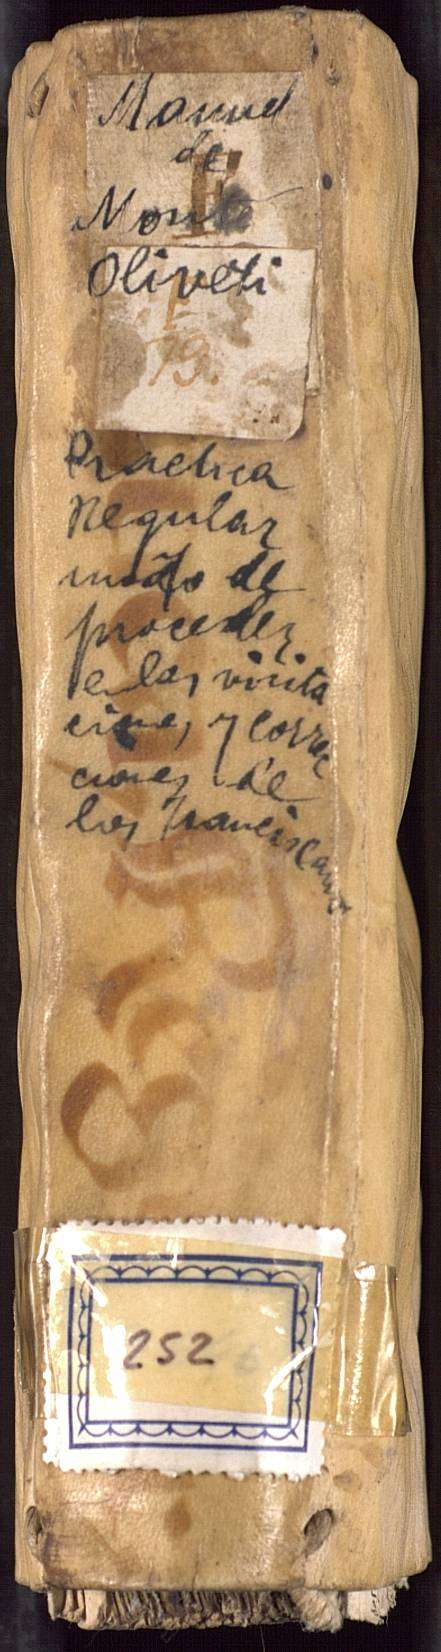 Manuel
de
E
Monte
Oliveti
E
79.
Practica
Regular
modo de
proceder
en las visita
ciones y correc
ciones de
los Franciscanos
252